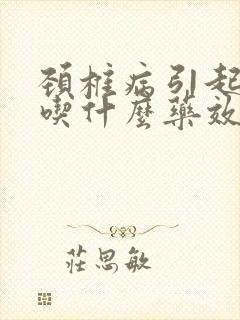 頚椎病引起
喫什麼藥效
莊思敏